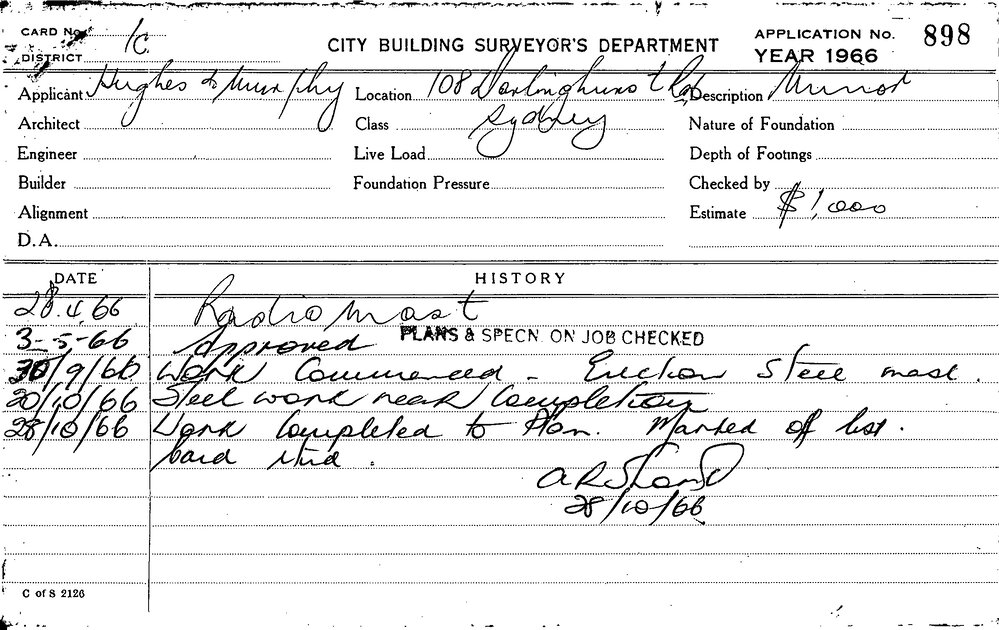 CARD No. 1C
DISTRICT
CITY BUILDING SURVEYOR'S DEPARTMENT
APPLICATION No. 898
YEAR 1966
Applicant Hughes & Murphy Location 108 Darlinghurst Rd Description Minor
Architect Class Sydney Nature of Foundation
Engineer Live Load Depth of Footings
Builder Foundation Pressure Checked by
Alignment Estimate $1,000
D.A.
DATE HISTORY
28.4.66 Radio Mast
3-5-66 Approved PLANS & SPECN. ON JOB CHECKED
30/9/66 Work Commenced - Erection Steel mast.
20/10/66 Steel work near Completion
28/10/66 Work Completed to Plan. Marked off list.
Card
28/10/66
C of S 2126